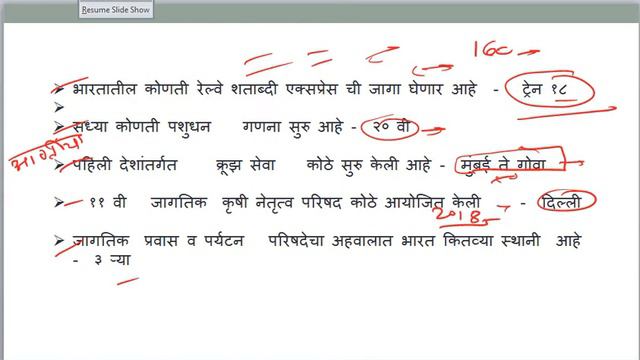 Resume Slide Show
160
भारतातील कोणती रेल्वे शताब्दी एक्सप्रेस ची जागा घेणार आहे - ट्रेन १८
सध्या कोणती पशुधन गणना सुरु आहे - २० वी
पहिली देशांतर्गत क्रूझ सेवा कोठे सुरु केली आहे - मुंबई ते गोवा
११ वी जागतिक कृषी नेतृत्व परिषद कोठे आयोजित केली - दिल्ली
2018
जागतिक प्रवास व पर्यटन परिषदेचा अहवालात भारत कितव्या स्थानी आहे
- ३ ऱ्या